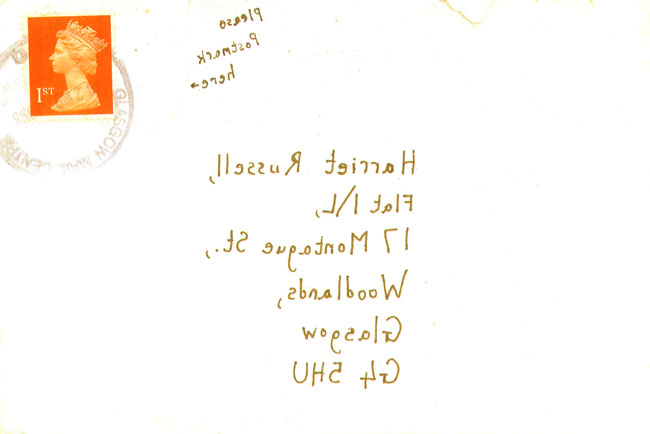 1ST
GLASGOW MAIL CENTRE
Please
Postmark
here →
Harriet Russell,
Flat 1/L,
17 Montague St.,
Woodlands,
Glasgow
G4 5HU